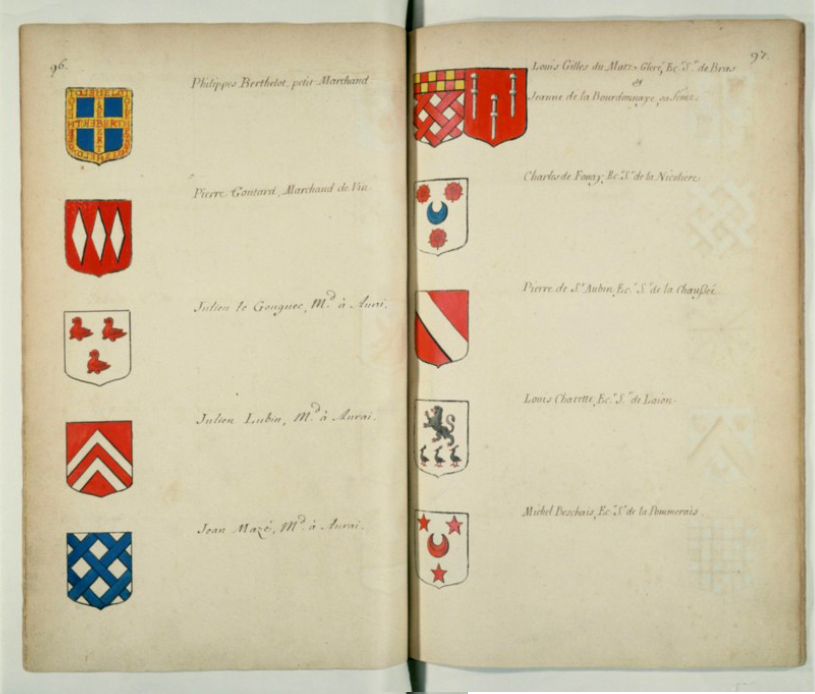 96.
Philippes Berthelot, petit Marchand
Pierre Goutard, Marchand de Vin
Julien le Gouguec, M.d à Aurai.
Julien Lubin, M.d à Aurai.
Jean Mazé, M.d à Aurai.
97.
Louis Gilles du Matz-Glevé, Ec. S.r de Bras
&
Jeanne de la Bourdonnaye, sa feme.
Charles de Fonay, Ec. S.r de la Nicoliere
Pierre de S.t Aubin, Ec. S.r de la Chaussei.
Louis Charette, Ec. S.r de Laion
Michel Peschais, Ec. S.r de la Pommerais